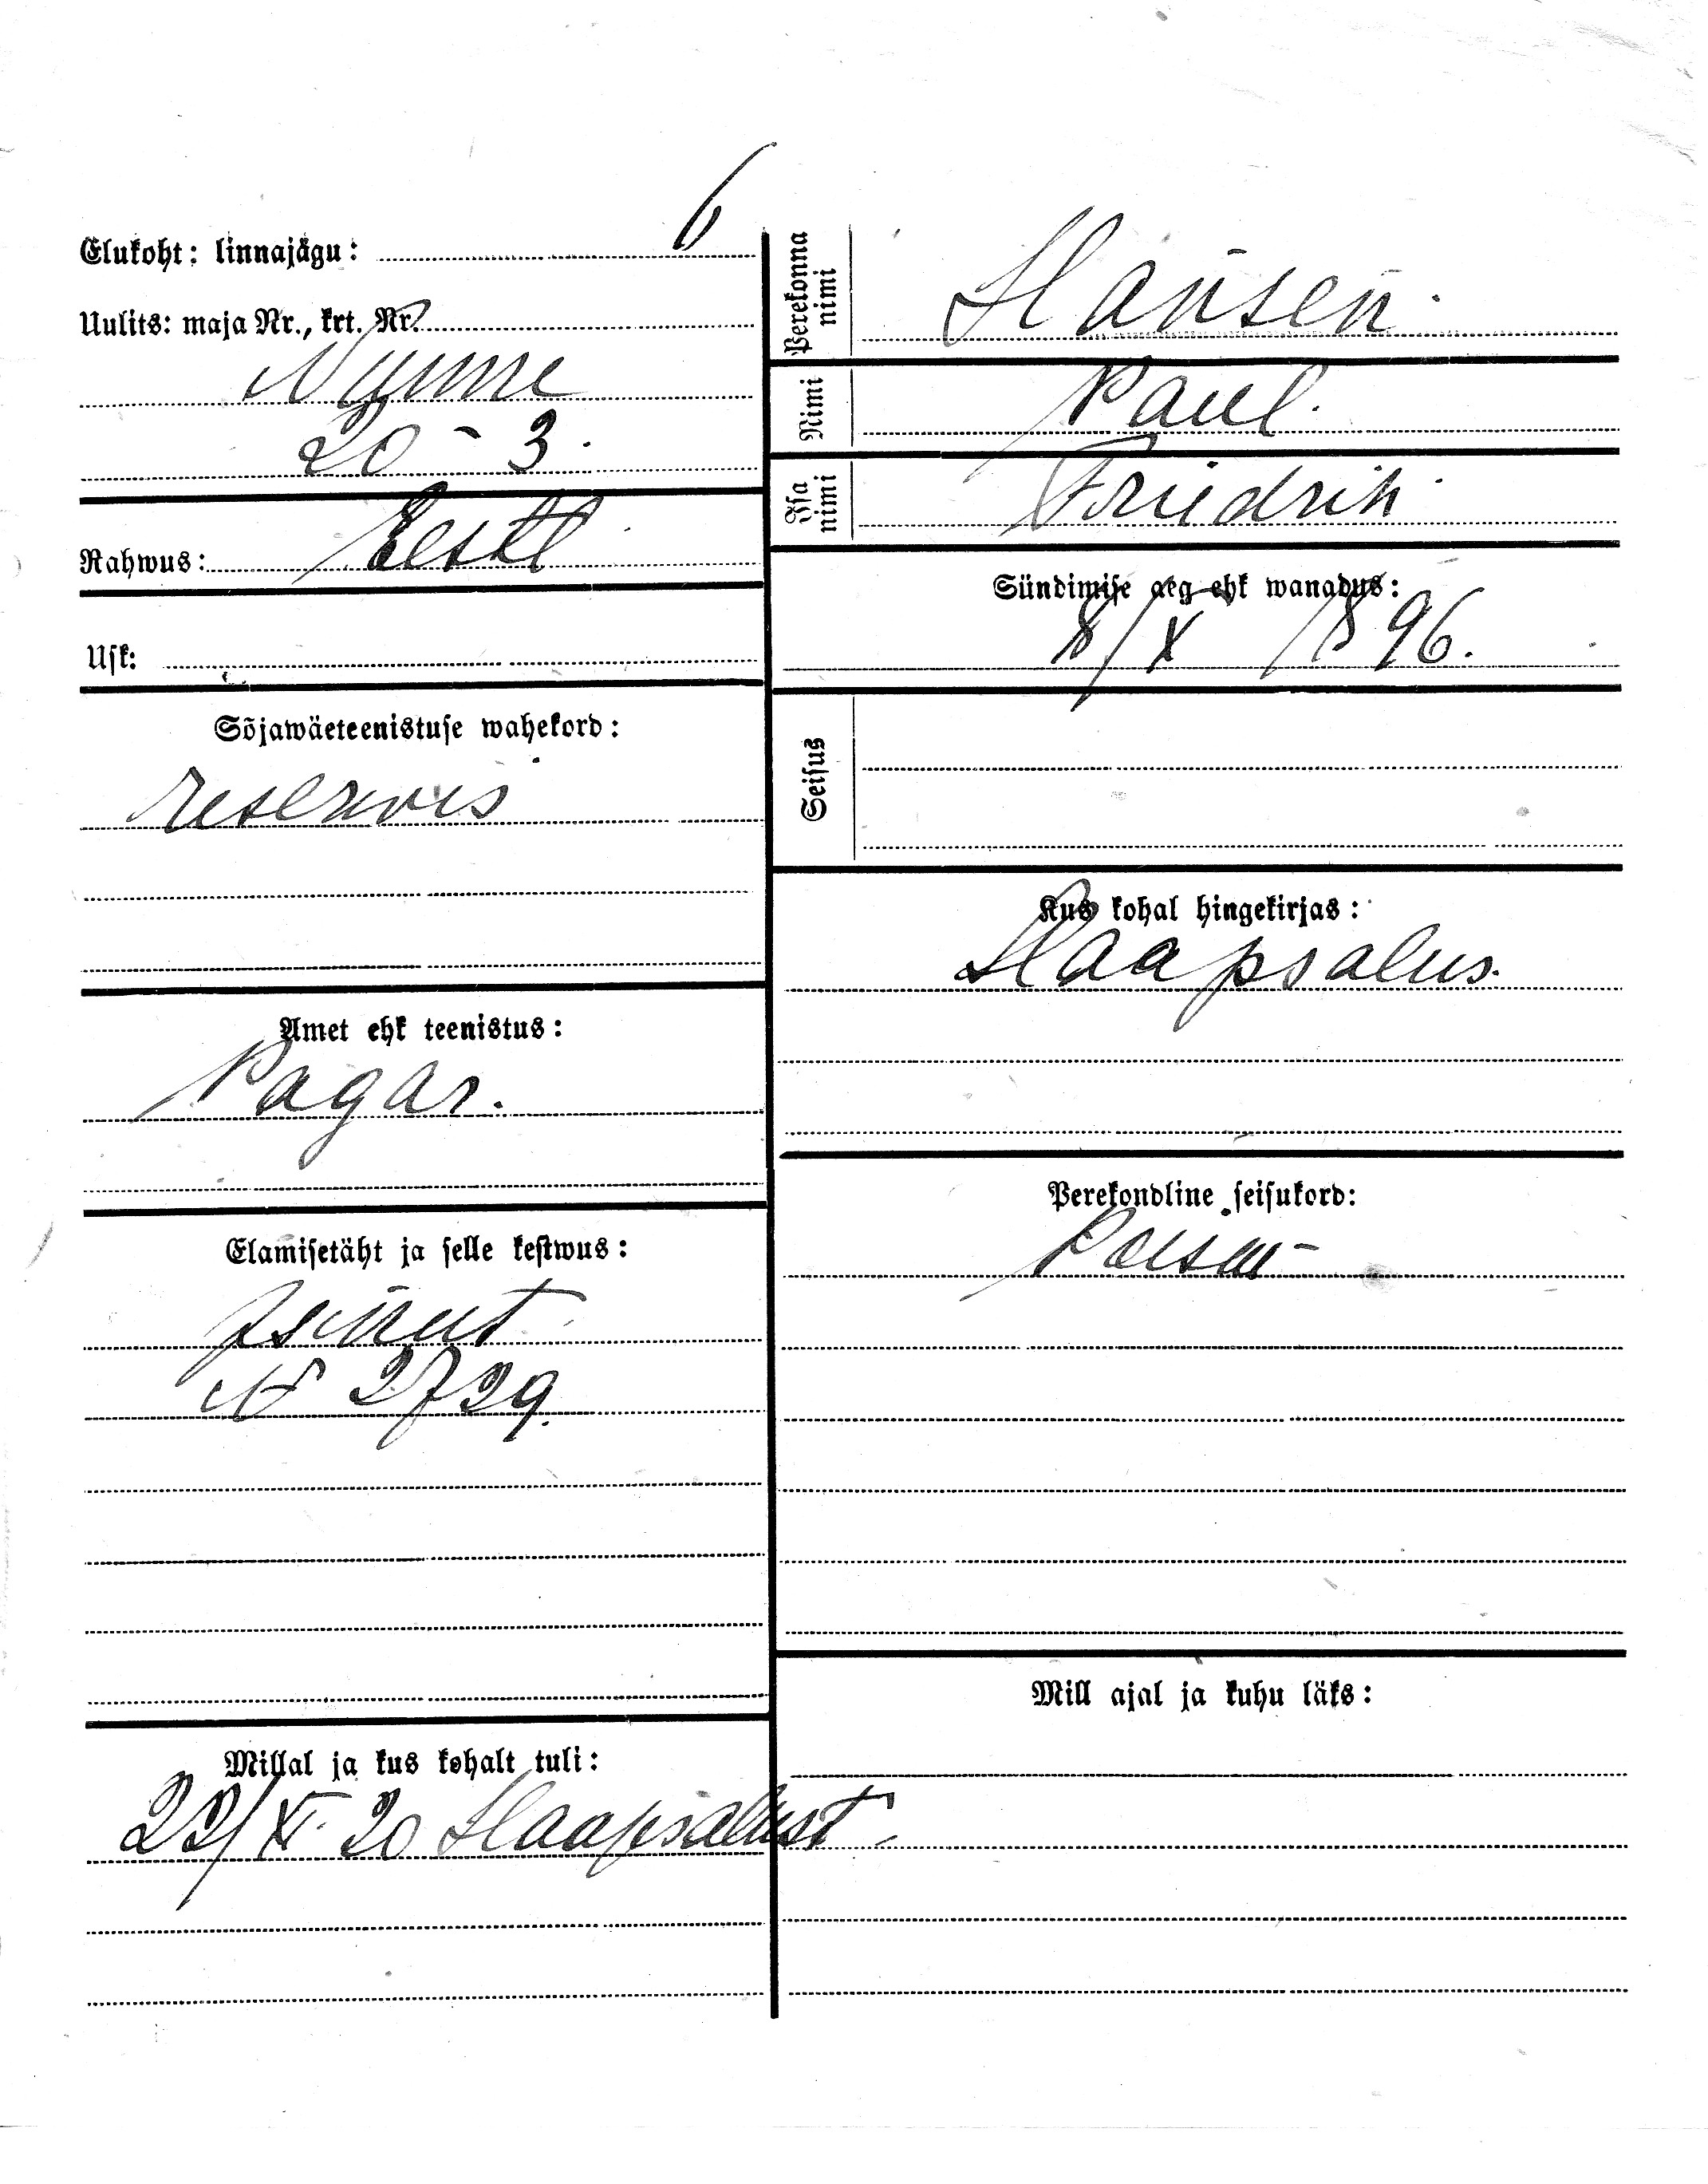 Elukoht: linnajägu: 6
Uulits: maja Nr., krt. Nr.
Nymme
20 - 3.
Rahwus: Eestl
Usk:
Sõjawäeteenistuse wahekord:
reservis
Amet ehk teenistus:
Pagar.
Elamisetäht ja selle kestwus:
№ 2729.
Millal ja kus kohalt tuli:
22/XI 20 Haapsalust
Perekonna nimi
Hansen.
Nimi
Paul.
Isa nimi
Friedrih
Sündimise aeg ehk wanadus:
8/X 1896.
Seisus
Kus kohal hingekirjas:
Haapsalus.
Perekondline seisukord:
Mill ajal ja kuhu läks: